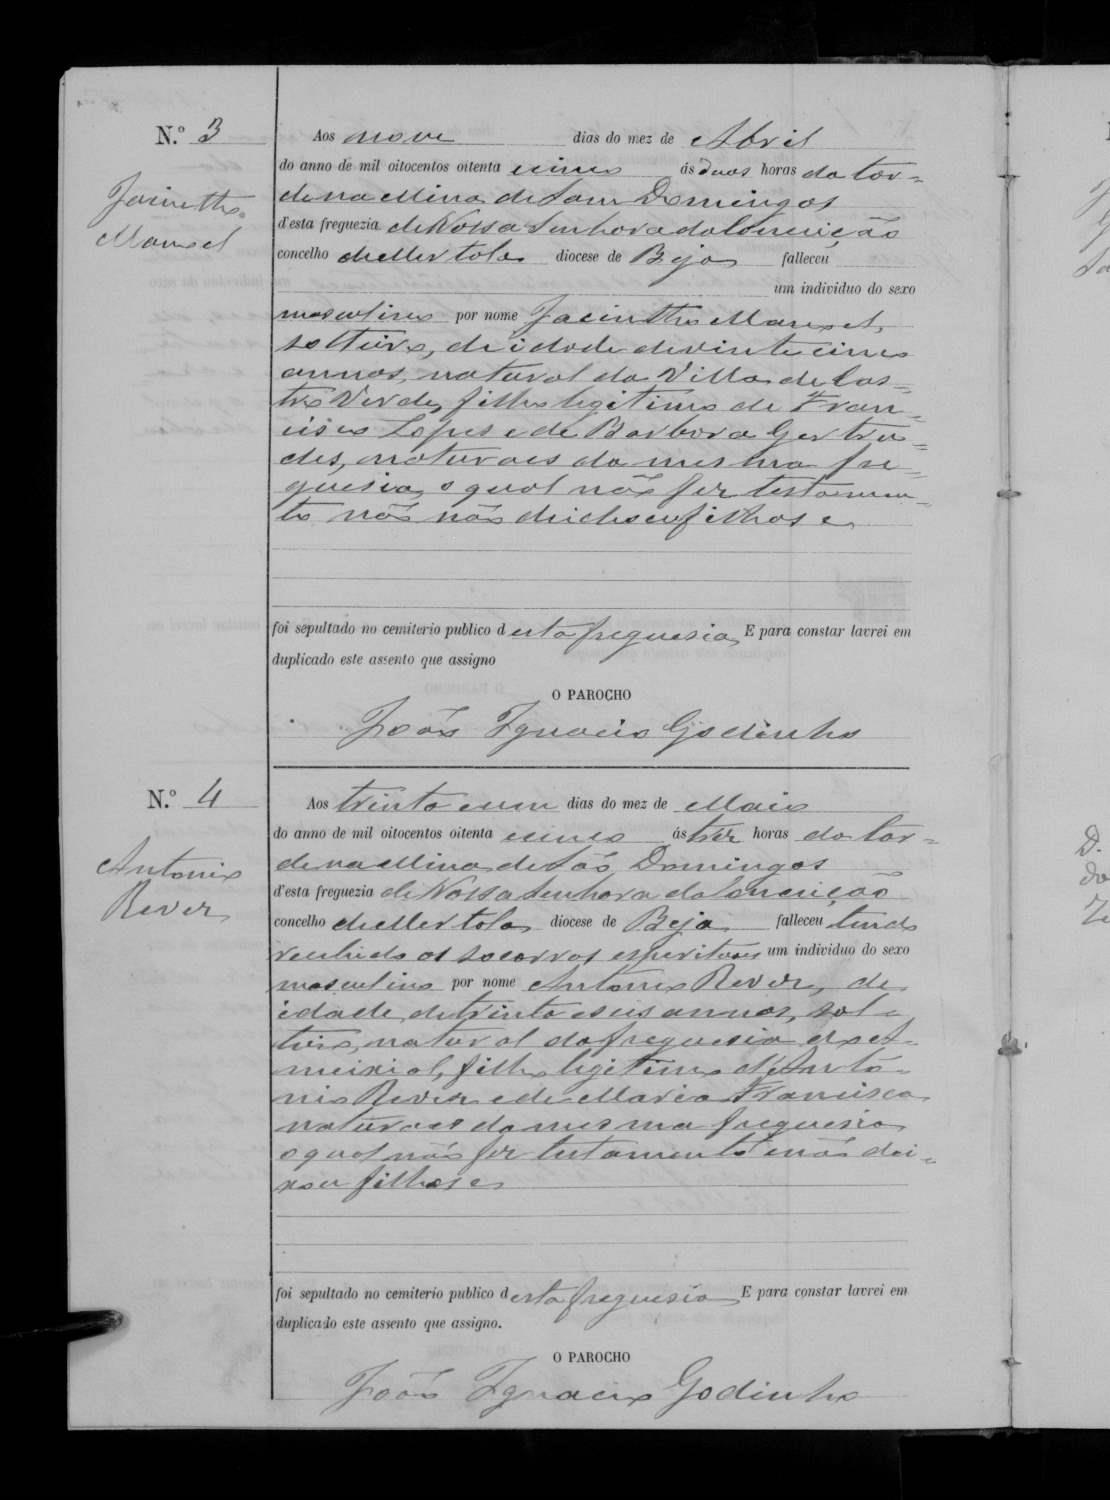 N.º 3
Jacintho
Manoel
Aos nove dias do mez de Abril
do anno de mil oitocentos oitenta e cinco ás duas horas da tar=
de na Mina de Sam Domingos
d'esta freguezia de Nossa Senhora da Conceição
concelho de Mertola diocese de Beja falleceu
um individuo do sexo
masculino por nome Jacintho Manoel,
solteiro, de idade de vinte cinco
annos, natural da Villa de Cas=
tro Verde, filho legitimo de Fran=
cisco Lopes e de Barbora Gertru=
des, naturaes da mesma fre=
guesia, o qual não fez testamen=
to não não deichou filhos e
foi sepultado no cemiterio publico d esta freguesia, E para constar lavrei em
duplicado este assento que assigno
O PAROCHO
João Ignacio Godinho
N.º 4
Antonio
Rever
Aos trinta e um dias do mez de Maio
do anno de mil oitocentos oitenta e cinco ás trez horas da tar=
de na Mina de São Domingos
d'esta freguezia de Nossa Senhora da Conceição
concelho de Mertola diocese de Beja falleceu tendo
recebido os socorros espirituaes um individuo do sexo
masculino por nome Antonio Rever, de
idade de trinta e seis annos, sol=
teiro, natural da freguesia d
filho legitimo d'Anto=
nio Rever e de Maria Francisca
naturaes da mesma freguesia
o qual não fez testamento e não dei=
xou filhos e
foi sepultado no cemiterio publico d esta freguesia E para constar lavrei em
duplicado este assento que assigno.
O PAROCHO
João Ignacio Godinho